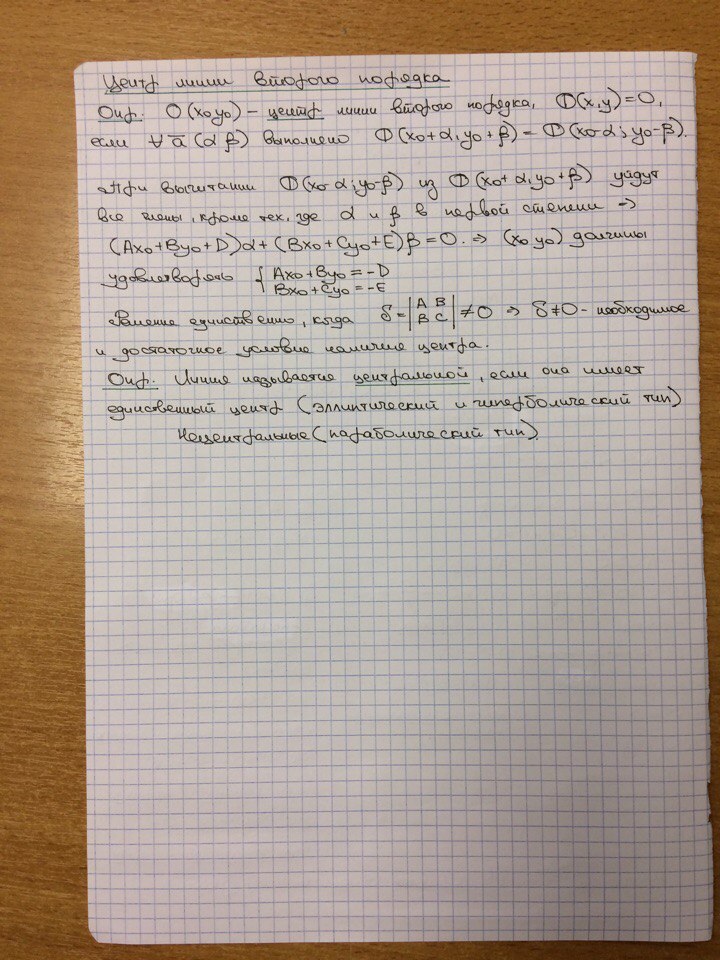 Центр линии второго порядка
Опр. O(x₀y₀) – центр линии второго порядка, Ф(x,y)=0,
если ∀ a̅ (α β) выполнено Ф(x₀+α, y₀+β) = Ф(x₀-α; y₀-β).
При вычитании Ф(x₀-α; y₀-β) из Ф(x₀+α, y₀+β) уйдут
все члены, кроме тех, где α и β в первой степени →
(Ax₀+By₀+D)α+(Bx₀+Cy₀+E)β=0. ⇒ (x₀ y₀) должны
удовлетворять { Ax₀+By₀=-D
Bx₀+Cy₀=-E
Решение единственно, когда δ=|A B
B C| ≠0 ⇒ δ≠0 - необходимое
и достаточное условие наличие центра.
Опр. Линия называется центральной, если она имеет
единственный центр (эллиптический и гиперболический тип)
Нецентральные (параболический тип).